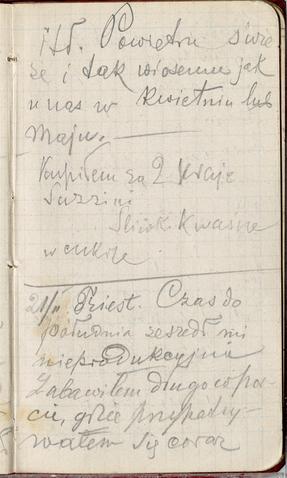 itd. Powietrze świe-
że i tak wiosenne jak
u nas w kwietniu lub
maju. —
Kupiłem za 2 kraje
Śliwki kwaśne
w cukrze.
21/II Triest. Czas do
południa zeszedł mi
nieprodukcyjnie
Zabawiłem długo w po-
cie, gdzie przypatry-
wałem się coraz